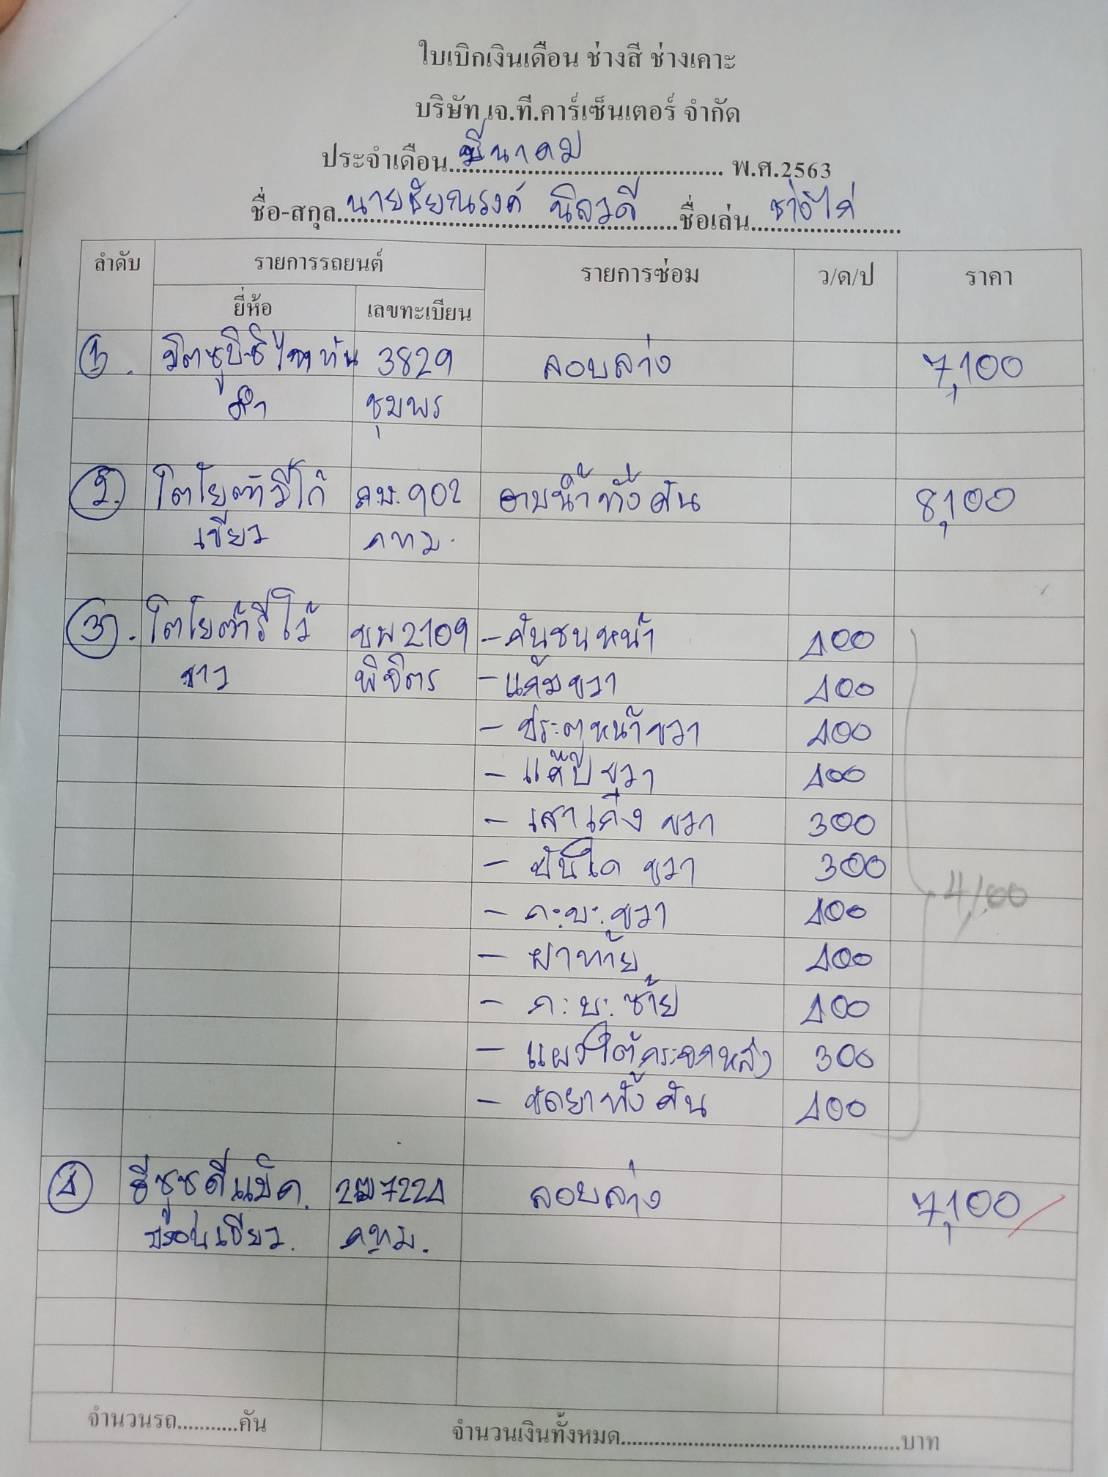 ใบเบิกเงินเดือน ช่างสี ช่างเคาะ
บริษัท เจ.ที.คาร์เซ็นเตอร์ จำกัด
ประจำเดือน มีนาคม พ.ศ.2563
ชื่อ-สกุล นายชัยณรงค์ นิลวดี ชื่อเล่น ช่างไก่
ลำดับ รายการรถยนต์ รายการซ่อม ว/ด/ป ราคา
ยี่ห้อ เลขทะเบียน
1. มิตซูบิชิไททัน 3829 ลอยล่าง 7,100
ดำ ชุมพร
2. โตโยต้าวีโก้ ฌม.902 อาบน้ำทั้งคัน 8,100
เขียว กทม.
3. โตโยต้ารีโว้ ขพ2109 - กันชนหน้า 400
ขาว พิจิตร - แก้มขวา 400
- ประตูหน้าขวา 400
- แค๊ปขวา 400
- เสาเก๋ง ขวา 300
- บันได ขวา 300
- ก:บ:ขวา 400
- ฝาท้าย 400
4,100
- ก:บ:ซ้าย 400
- แผงใต้กระจกหลัง 300
- ขัดยาทั้งคัน 400
4 อีซูซุดีแม็ค 2ฒ7224 ลอยล่าง 7,100
บรอนเขียว. กทม.
จำนวนรถ...........คัน จำนวนเงินทั้งหมด..................................................บาท